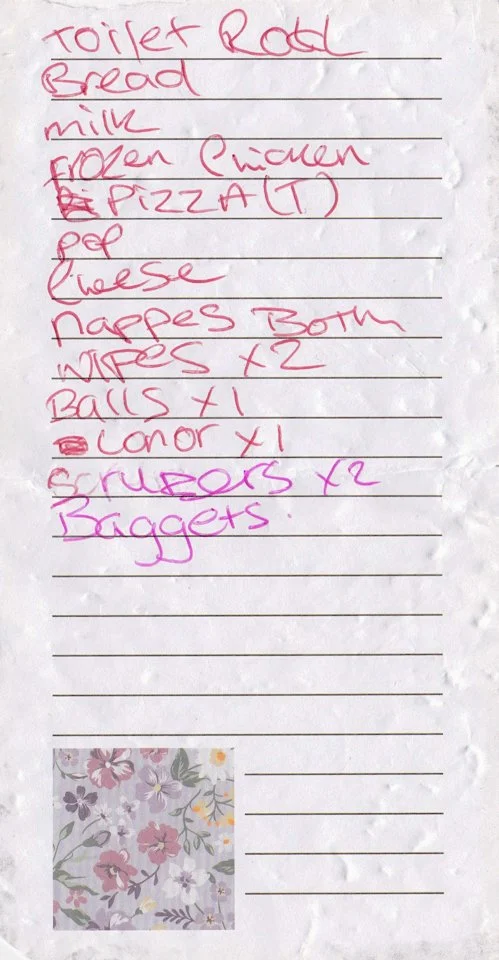 Toilet Roll
Bread
milk
Frozen Chicken
PizzA (T)
pop
Cheese
nappes Both
wipes x2
Balls x1
Lonor x1
scrubers x2
Baggets